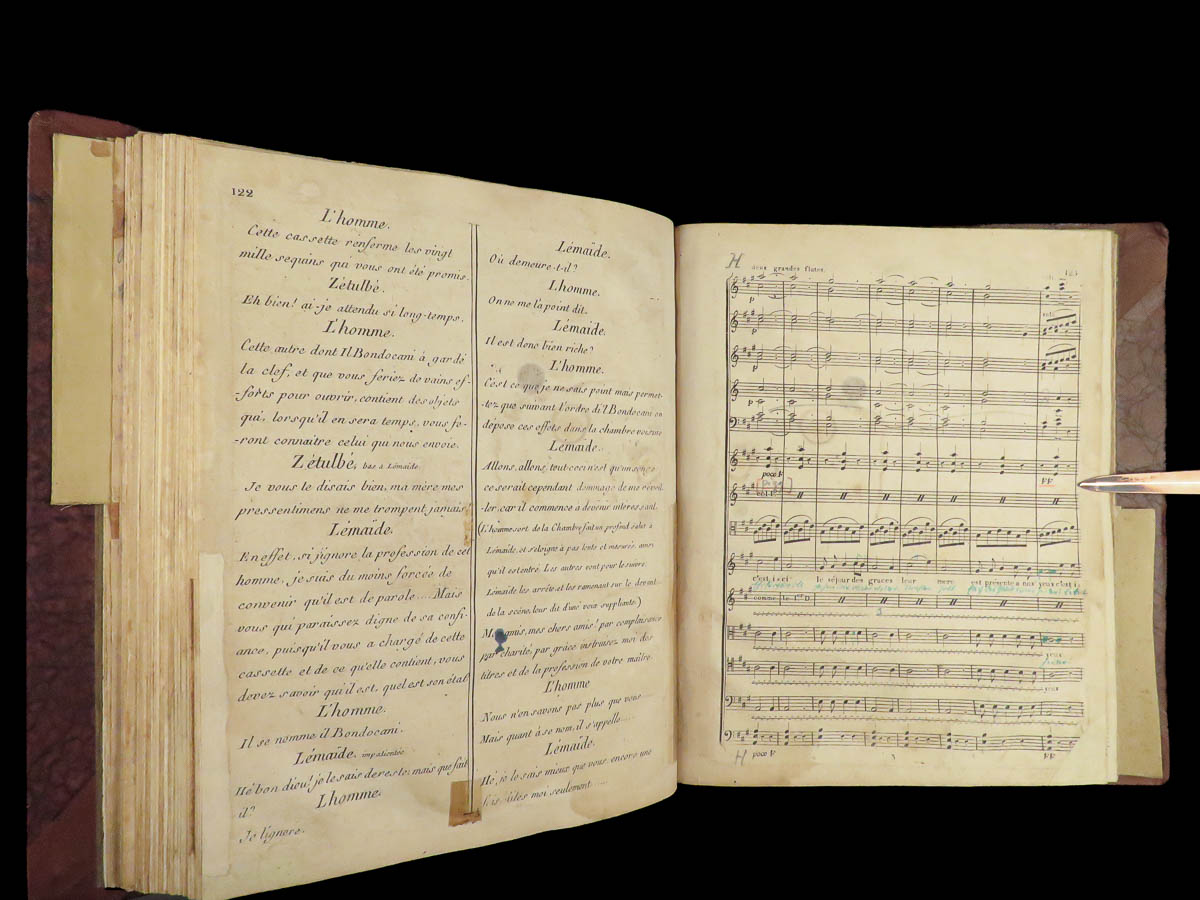 122
L'homme.
Cette cassette renferme les vingt
mille sequins qui vous ont été promis.
Zétulbé.
Eh bien! ai-je attendu si long-temps.
L'homme.
Cette autre dont Il Bondocani à gardé
la clef, et que vous feriez de vains ef-
-forts pour ouvrir, contient des objets
qui, lorsqu'il en sera temps, vous fe-
-ront connaitre celui qui nous envoie.
Zétulbé, bas a Lémaïde.
Je vous le disais bien, ma mère mes
pressentimens ne me trompent jamais.
Lémaïde.
En effet, si j'ignore la profession de cet
homme, je suis du moins forcée de
convenir qu'il est de parole.... Mais
vous qui paraissez digne de sa confi-
ance, puisqu'il vous a chargé de cette
cassette et de ce qu'elle contient, vous
devez savoir qui il est, quel est son état
L'homme.
Il se nomme il Bondocani.
Lémaïde. impatientée
Hé bon dieu! je le sais de reste; mais que fait
il?
L'homme.
Je l'ignore.
Lémaïde.
Où demeure-t-il?
L'homme.
On ne me l'a point dit.
Lémaïde.
Il est donc bien riche?
L'homme.
C'est ce que je ne sais point mais permet-
-tez que suivant l'ordre d'il Bondocani on
dépose ces effets dans la chambre voisine
Lémaïde.
Allons, allons, tout ceci n'est qu'un songe
ce serait cependant dommage de me réveil-
-ler car il commence à devenir interessant.
(L'homme sort de la Chambre fait un profond salut à
Lémaïde, et s'éloigne à pas lents et mesurés, ainsi
qu'il est entré. Les autres vont pour le suivre.
Lémaïde les arrête et les ramenant sur le devant
de la scène, leur dit d'une voix suppliante.)
Mes amis, mes chers amis! par complaisance
par charité, par grâce instruisez moi des
titres et de la profession de votre maître.
L'homme
Nous n'en savons pas plus que vous.....
Mais quant à se nom, il s'appelle.....
Lémaïde.
Hé, je le sais mieux que vous, encore une
fois dites moi seulement.....
H
deux grandes flutes.
123
p
p
p
p
poco F
FF
col 1
c'est i-ci le séjour des graces leur mere est présente à nos yeux c'est i-
comme le 1er D.
3
yeux
yeux
H
poco F
FF